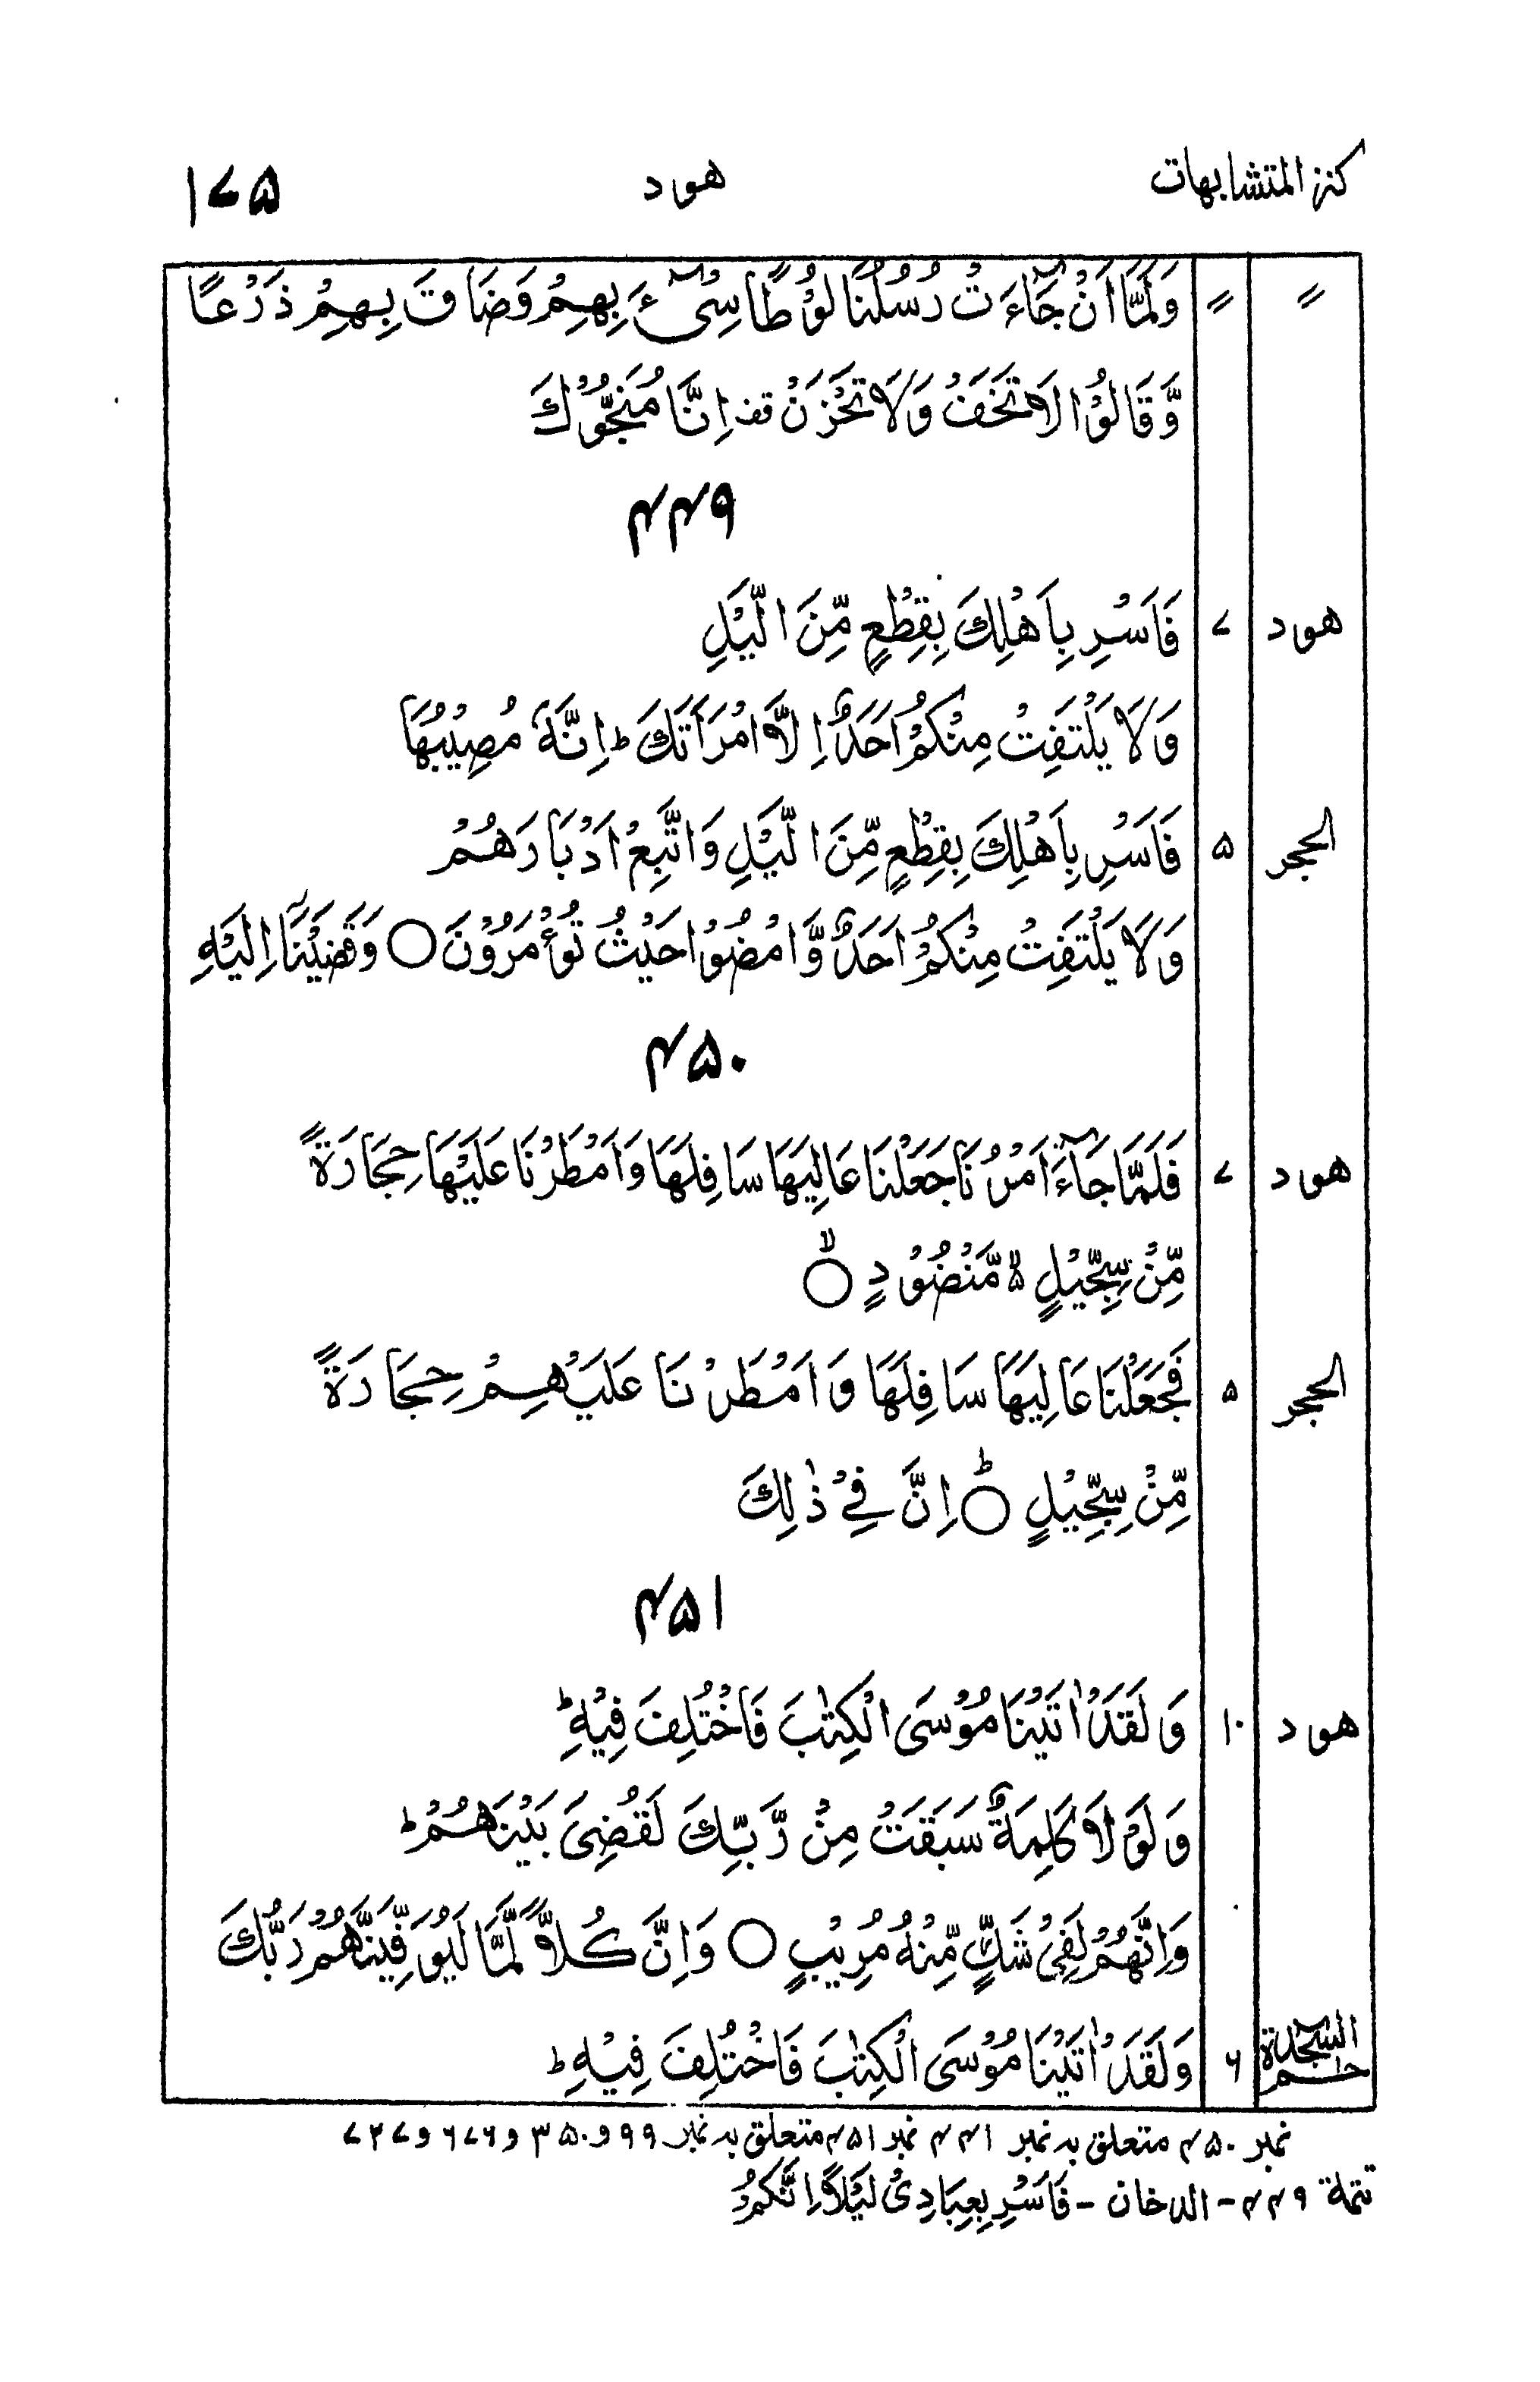 كنز المتشابهات هود ۱۷۵
〃 〃 وَلَمَّآ اَنْ جَآءَتْ رُسُلُنَا لُوْطًا سِیْٓءَ بِهِمْ وَضَاقَ بِهِمْ ذَرْعًا
وَّقَالُوْا لَا تَخَفْ وَلَا تَحْزَنْ قف اِنَّا مُنَجُّوْكَ
۴۴۹
هود ۷ فَاَسْرِ بِاَهْلِكَ بِقِطْعٍ مِّنَ الَّیْلِ
وَلَا یَلْتَفِتْ مِنْكُمْ اَحَدٌ اِلَّا امْرَاَتَكَ ؕ اِنَّهٗ مُصِیْبُهَا
الحجر ۵ فَاَسْرِ بِاَهْلِكَ بِقِطْعٍ مِّنَ الَّیْلِ وَاتَّبِعْ اَدْبَارَهُمْ
وَلَا یَلْتَفِتْ مِنْكُمْ اَحَدٌ وَّامْضُوْا حَیْثُ تُؤْمَرُوْنَ ○ وَقَضَیْنَآ اِلَیْهِ
۴۵۰
هود ۷ فَلَمَّا جَآءَ اَمْرُنَا جَعَلْنَا عَالِیَهَا سَافِلَهَا وَاَمْطَرْنَا عَلَیْهَا حِجَارَةً
مِّنْ سِجِّیْلٍ ۵ۙ مَّنْضُوْدٍ ○ۙ
الحجر ۵ فَجَعَلْنَا عَالِیَهَا سَافِلَهَا وَاَمْطَرْنَا عَلَیْهِمْ حِجَارَةً
مِّنْ سِجِّیْلٍ ○ؕ اِنَّ فِیْ ذٰلِكَ
۴۵۱
هود ۱۰ وَلَقَدْ اٰتَیْنَا مُوْسَی الْكِتٰبَ فَاخْتُلِفَ فِیْهِ ؕ
وَلَوْلَا كَلِمَةٌ سَبَقَتْ مِنْ رَّبِّكَ لَقُضِیَ بَیْنَهُمْ ؕ
وَاِنَّهُمْ لَفِیْ شَكٍّ مِّنْهُ مُرِیْبٍ ○ وَاِنَّ كُلًّا لَّمَّا لَیُوَفِّیَنَّهُمْ رَبُّكَ
حٰم السجدة ۶ وَلَقَدْ اٰتَیْنَا مُوْسَی الْكِتٰبَ فَاخْتُلِفَ فِیْهِ ؕ
نمبر ۴۵۰ متعلق بہ نمبر ۴۴۱ نمبر ۴۵۱ متعلق بہ نمبر ۹۹ و ۳۵۰ و ۶۷۶ و ۷۲۷
تتمة ۴۴۹ - الدخان - فَاَسْرِ بِعِبَادِیْ لَیْلًا اِنَّكُمْ